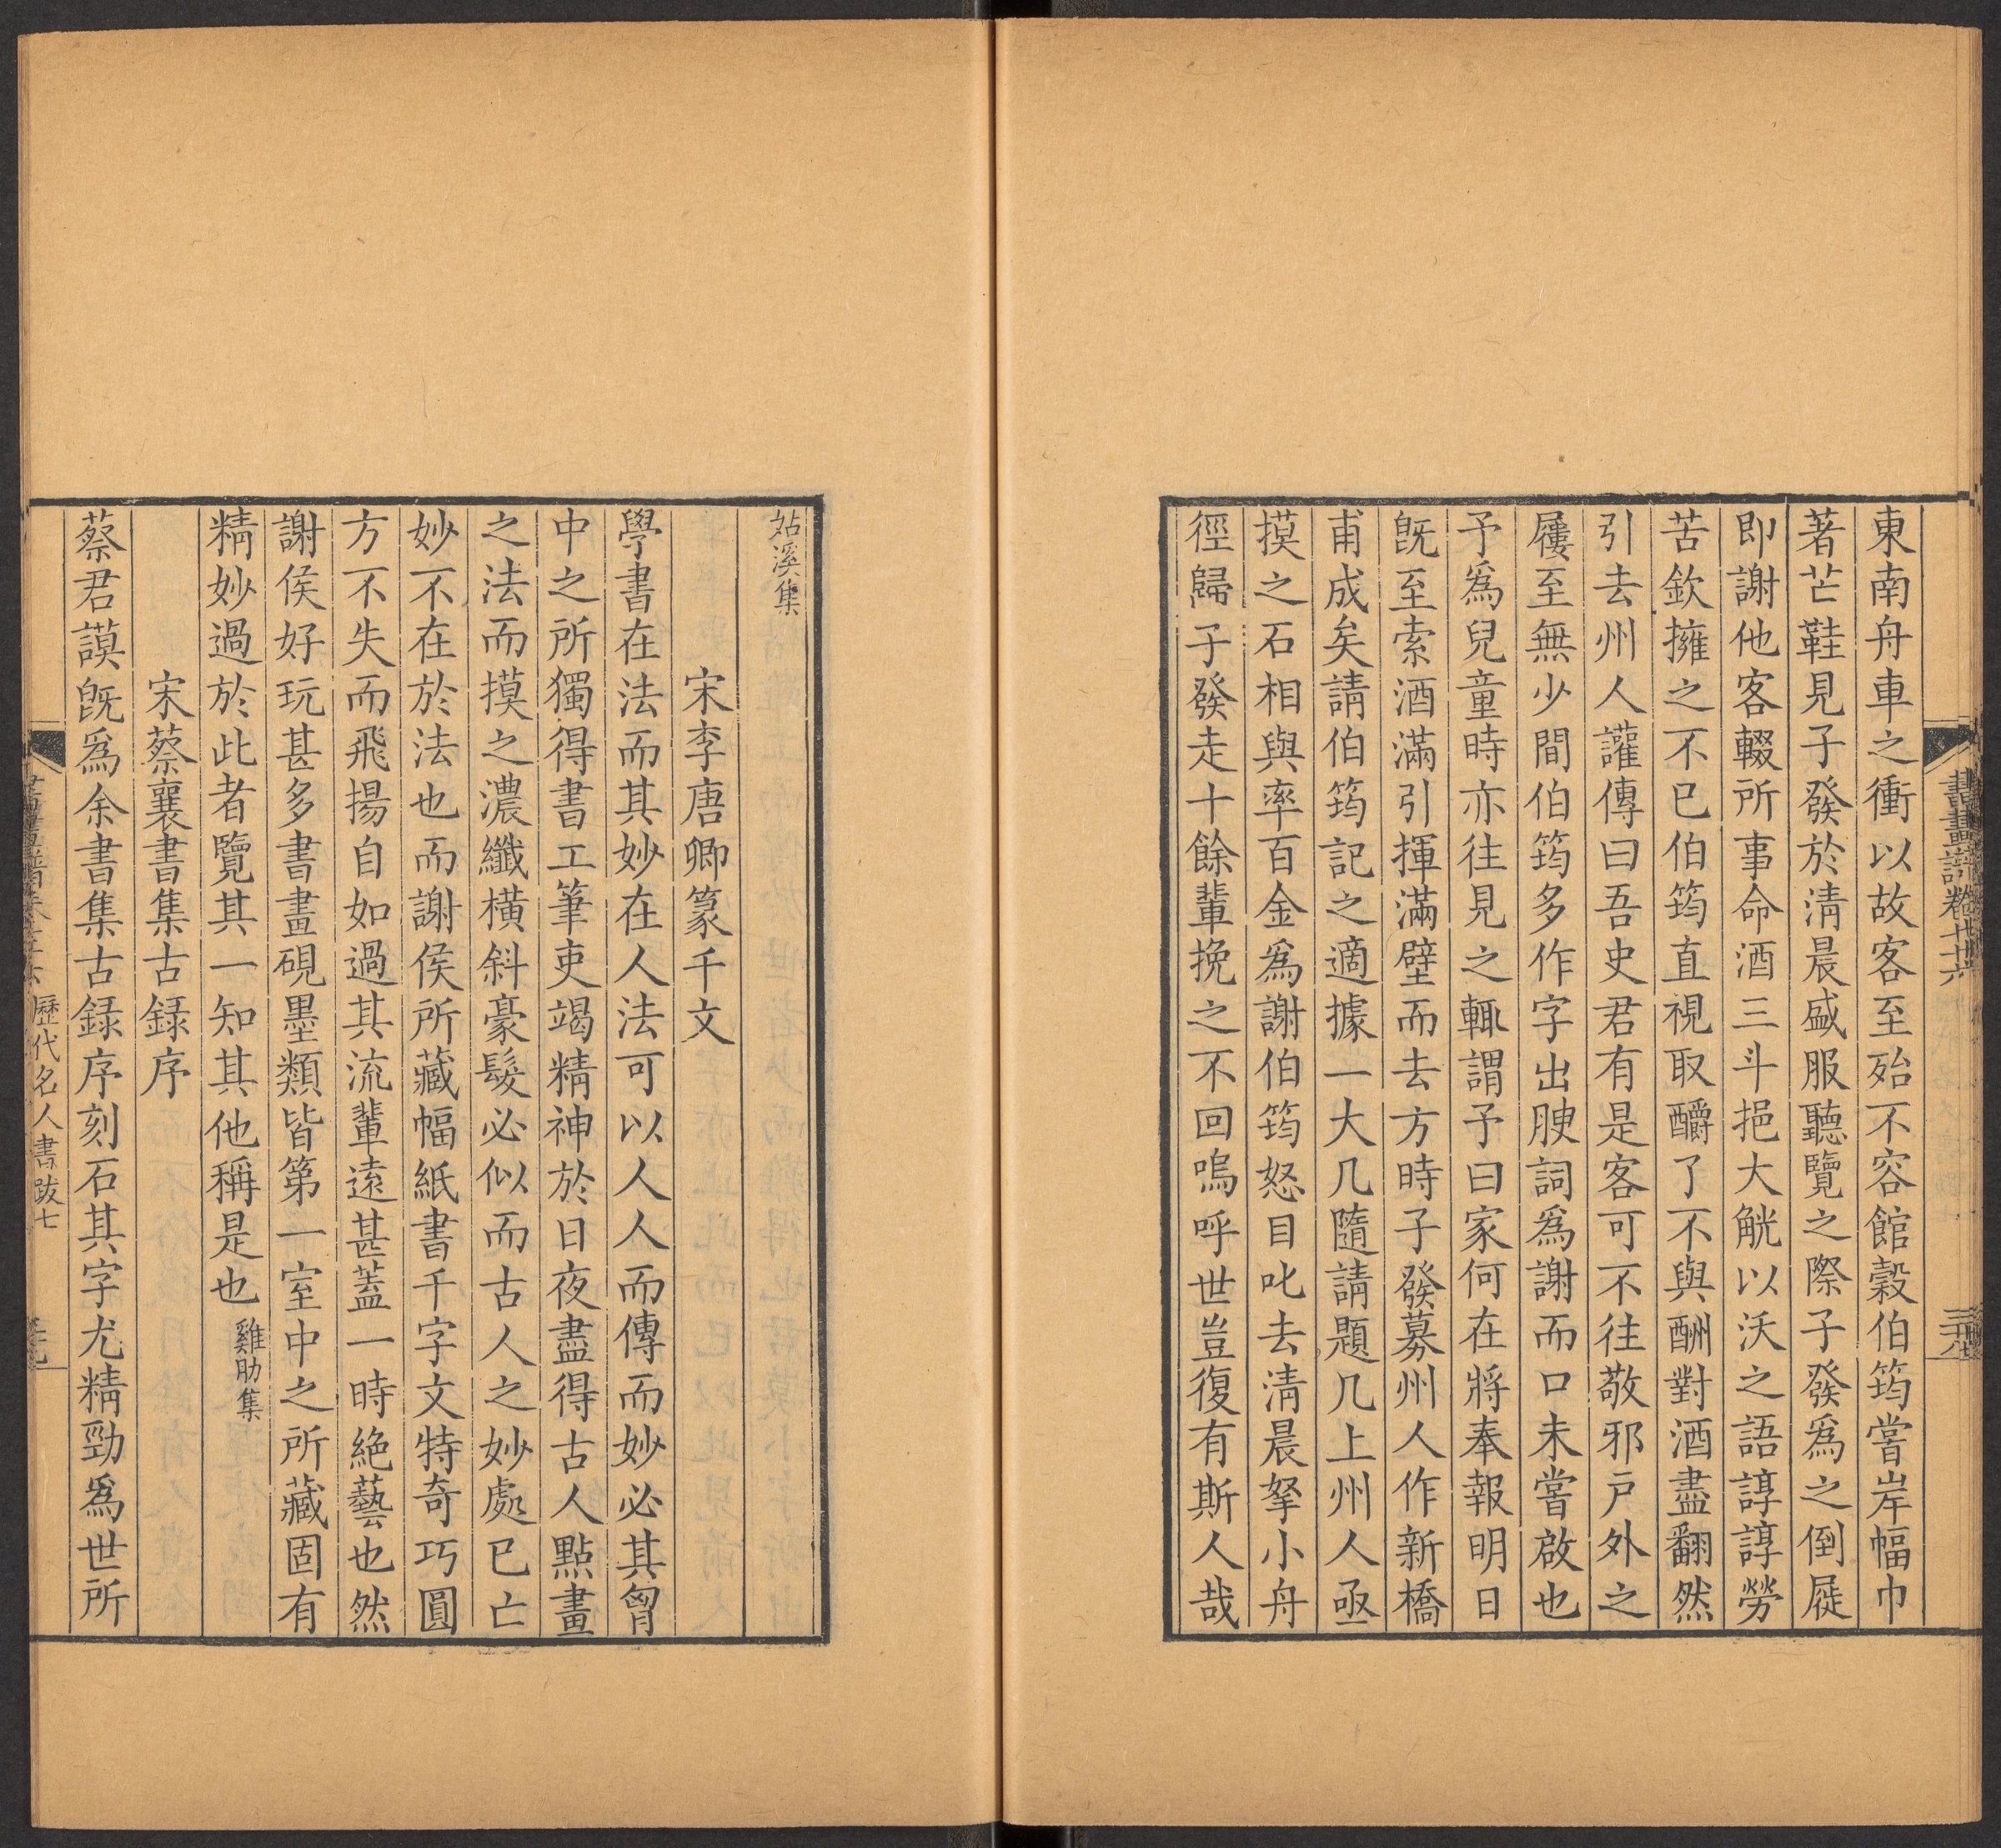 東南舟車之衝以故客至殆不容館榖伯筠嘗岸幅巾
著芒鞋見子發於清晨盛服聽覽之際子發爲之倒屣
即謝他客輟所事命酒三斗挹大觥以沃之語諄諄勞
苦欽擁之不已伯筠直視取釂了不與酬對酒盡翻然
引去州人讙傳曰吾史君有是客可不往敬邪戸外之
屨至無少間伯筠多作字出腴詞爲謝而口未嘗啟也
予爲兒童時亦往見之輒謂予曰家何在將奉報明日
旣至索酒滿引揮滿壁而去方時子發募州人作新橋
甫成矣請伯筠記之適據一大几隨請題几上州人亟
摸之石相與率百金爲謝伯筠怒目叱去清晨拏小舟
徑歸子發走十餘輩挽之不回嗚呼世豈復有斯人哉
書畫譜卷七十六
姑溪集
宋李唐卿篆千文
學書在法而其妙在人法可以人人而傳而妙必其胷
中之所獨得書工筆吏竭精神於日夜盡得古人點畫
之法而摸之濃纖橫斜豪髮必似而古人之妙處已亡
妙不在於法也而謝侯所藏幅紙書千字文特奇巧圓
方不失而飛揚自如過其流輩遠甚蓋一時絶藝也然
謝侯好玩甚多書畫硯墨類皆第一室中之所藏固有
精妙過於此者覽其一知其他稱是也 雞肋集
宋蔡襄書集古録序
蔡君謨旣爲余書集古録序刻石其字尤精勁爲世所
歷代名人書跋七